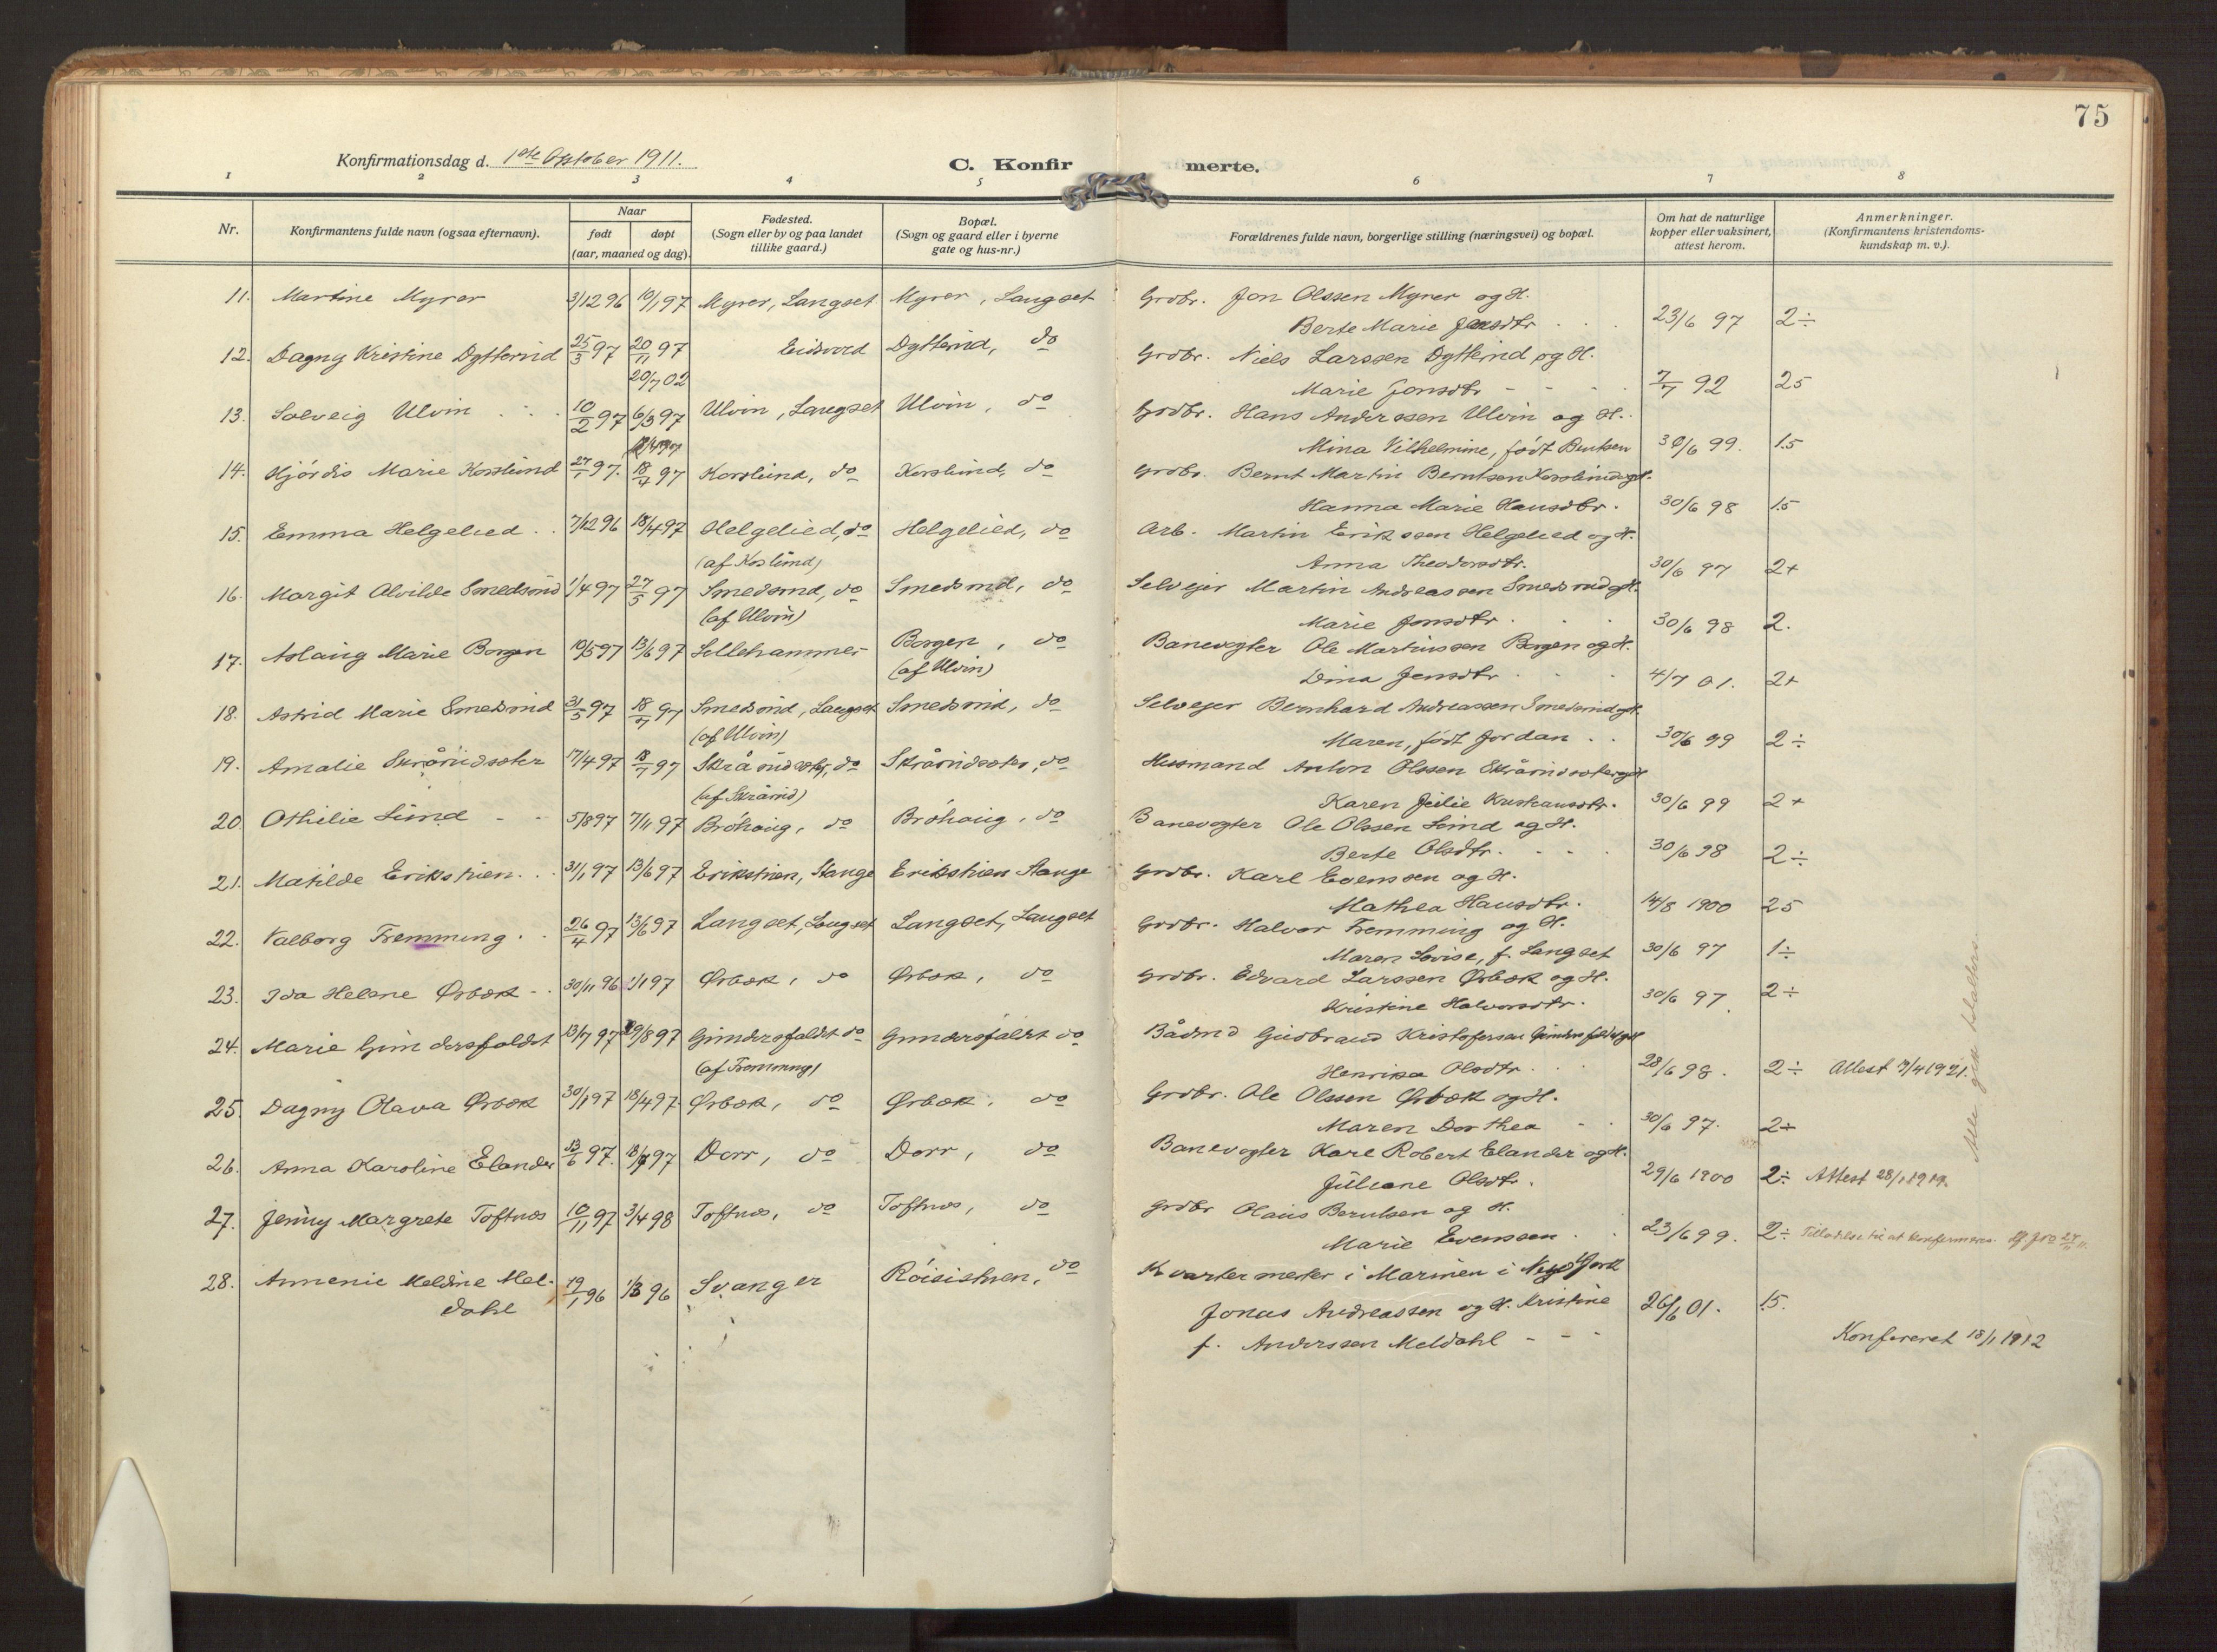 75
Konfirmationsdag d. 1ste Oktober 1911.
C. Konfirmerte.
1 2 3 4 5 6 7 8
Nr.
Konfirmantens fulde navn (ogsaa efternavn).
Naar
født
døpt
(aar, maaned og dag).
Fødested.
(Sogn eller by og paa landet
tillike gaard.)
Bopæl.
(Sogn og gaard eller i byerne
gate og hus-nr.)
Forældrenes fulde navn, borgerlige stilling (næringsvei) og bopæl.
Om hat de naturlige
kopper eller vaksinert,
attest herom.
Anmerkninger.
(Konfirmantens kristendoms-
kundskap m. v.).
11. Martine Myrer 3/12 96 10/1 97 Myrer, Langset Myrer, Langset Grdbr. Jon Olssen Myrer og H.
Berte Marie Jensdtr. 23/6 97 2÷
12. Dagny Kristine Dytterud 25/3 97 20/11 97 Eidsvold Dytterud, do Grdbr. Niels Larssen Dytterud og H.
20/7 02
Marie Jonsdtr 7/7 92 2.5
13. Solveig Ulvin 10/2 97 6/3 97 Ulvin, Langset Ulvin, do Grdbr. Hans Anderssen Ulvin og H.
Mina Vilhelmine, født Bentsen 30/6 99. 1.5
14. Hjördis Marie Korslund 27/1 97. 18/4 97 Korslund, do Korslund, do Grdbr. Bernt Martin Berntsen Korslund og H.
Hanna Marie Hansdtr. 30/6 98 1.5
15. Emma Helgelied 7/12 96 18/4 97 Helgelied, do Helgelied, do Arb. Martin Erikssen Helgelied og H.
(af Korslund)
Anna Theodorsdtr. 30/6 97 2+
16. Margit Alvilde Smedsrud 1/4 97 27/5 97 Smedsrud, do Smedsrud, do Selvejer Martin Andreassen Smedsrud og H.
(af Ulvin)
Marie Jonsdtr. 30/6 98 2.
17. Aslaug Marie Borgen 10/5 97 13/6 97 Lillehammer Borgen, do Banevogter Ole Martinssen Borgen og H.
(af Ulvin)
Dina Jensdtr 4/7 01. 2+
18. Astrid Marie Smedsrud 31/5 97 18/7 97 Smedsrud, Langset Smedsrud, do Selvejer Bernhard Andreassen Smedsrud og H.
(af Ulvin)
Maren, født Jordan 30/6 99 2÷
19. Amalie Skrårudsæter 17/4 97 18/7 97 Skrårudsæter, do Skrårudsæter, do Husmand Anton Olssen Skrårudsæter og H.
(af Skrårud)
Karen Julie Kristiansdtr. 30/6 99 2+
20. Othilie Lund 5/8 97 7/11 97 Bröhaug, do Bröhaug, do Banevogter Ole Olssen Lund og H.
Berte Olsdtr. 30/6 98 2÷
21. Matilde Erikstuen 31/1 97 13/6 97 Erikstuen, Stange Erikstuen Stange Grdbr. Karl Evenssen og H.
Mathea Hansdtr. 14/8 1900 2.5
22. Valborg Fremming 26/4 97 13/6 97 Langset, Langset Langset, Langset Grdbr. Halvor Fremming og H.
Maren Lovise, f. Langset 30/6 97 1÷
23. Ida Helene Ørbæk 30/11 96 1/1 97 Ørbæk, do Ørbæk, do Grdbr. Edvard Larssen Ørbæk og H.
Kristine Halvorsdtr. 30/6 97. 2÷
24. Marie Gundersfaldet 13/7 97 29/8 97 Gundersfaldet do Gundersfaldet do Bådmd Gudbrand Kristofersen Gundersfaldet og H
(af Fremming)
Henrika Olsdtr. 28/6 98. 2÷ Attest 7/4 1921.
25. Dagny Olava Ørbæk 30/1 97 18/4 97 Ørbæk, do Ørbæk, do Grdbr. Ole Olssen Ørbæk og H.
Maren Dorthea 30/6 97. 2÷
26. Anna Karoline Elander 13/6 97. 18/7 97 Dorr, do Dorr, do Banevogter Karl Robert Elander og H.
Juliane Olsdtr. 29/6 1900 2÷ Attest 28/1 1919.
27. Jenny Margrete Toftnæs 10/11 97 3/4 98 Toftnæs, do Toftnæs, do Grdbr Olaus Berntsen og H.
Marie Evenssen 23/6 99. 2÷ Tilladelse til at konfirmeres.
28. Annenie Meldine Mel-
dahl 19/1 96 1/3 96 Svanger Röisistuen, do Kvartermester i Marinen i New York
Jonas Andreassen og H. Kristine 26/6 01. 1.5.
f. Anderssen Meldahl
Konfereret 18/1 1912